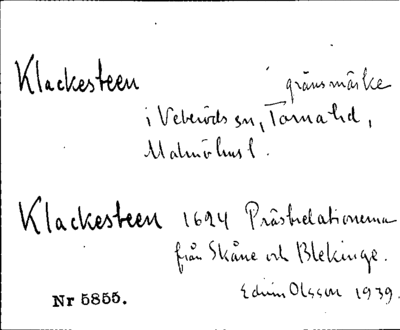 Klackesteen gränsmärke
i Veberöds sn, Torna hd,
Malmöhus l.
Klackesteen 1624 Prästrelationerna
från Skåne och Blekinge.
Nr 5855. Edvin Olsson 1939.